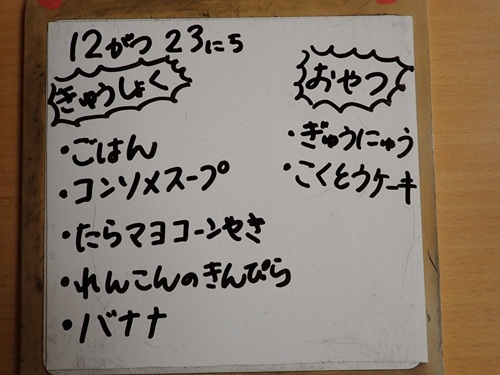 12がつ 23にち
きゅうしょく
・ごはん
・コンソメスープ
・たらマヨコーンやき
・れんこんのきんぴら
・バナナ
おやつ
・ぎゅうにゅう
・こくとうケーキ